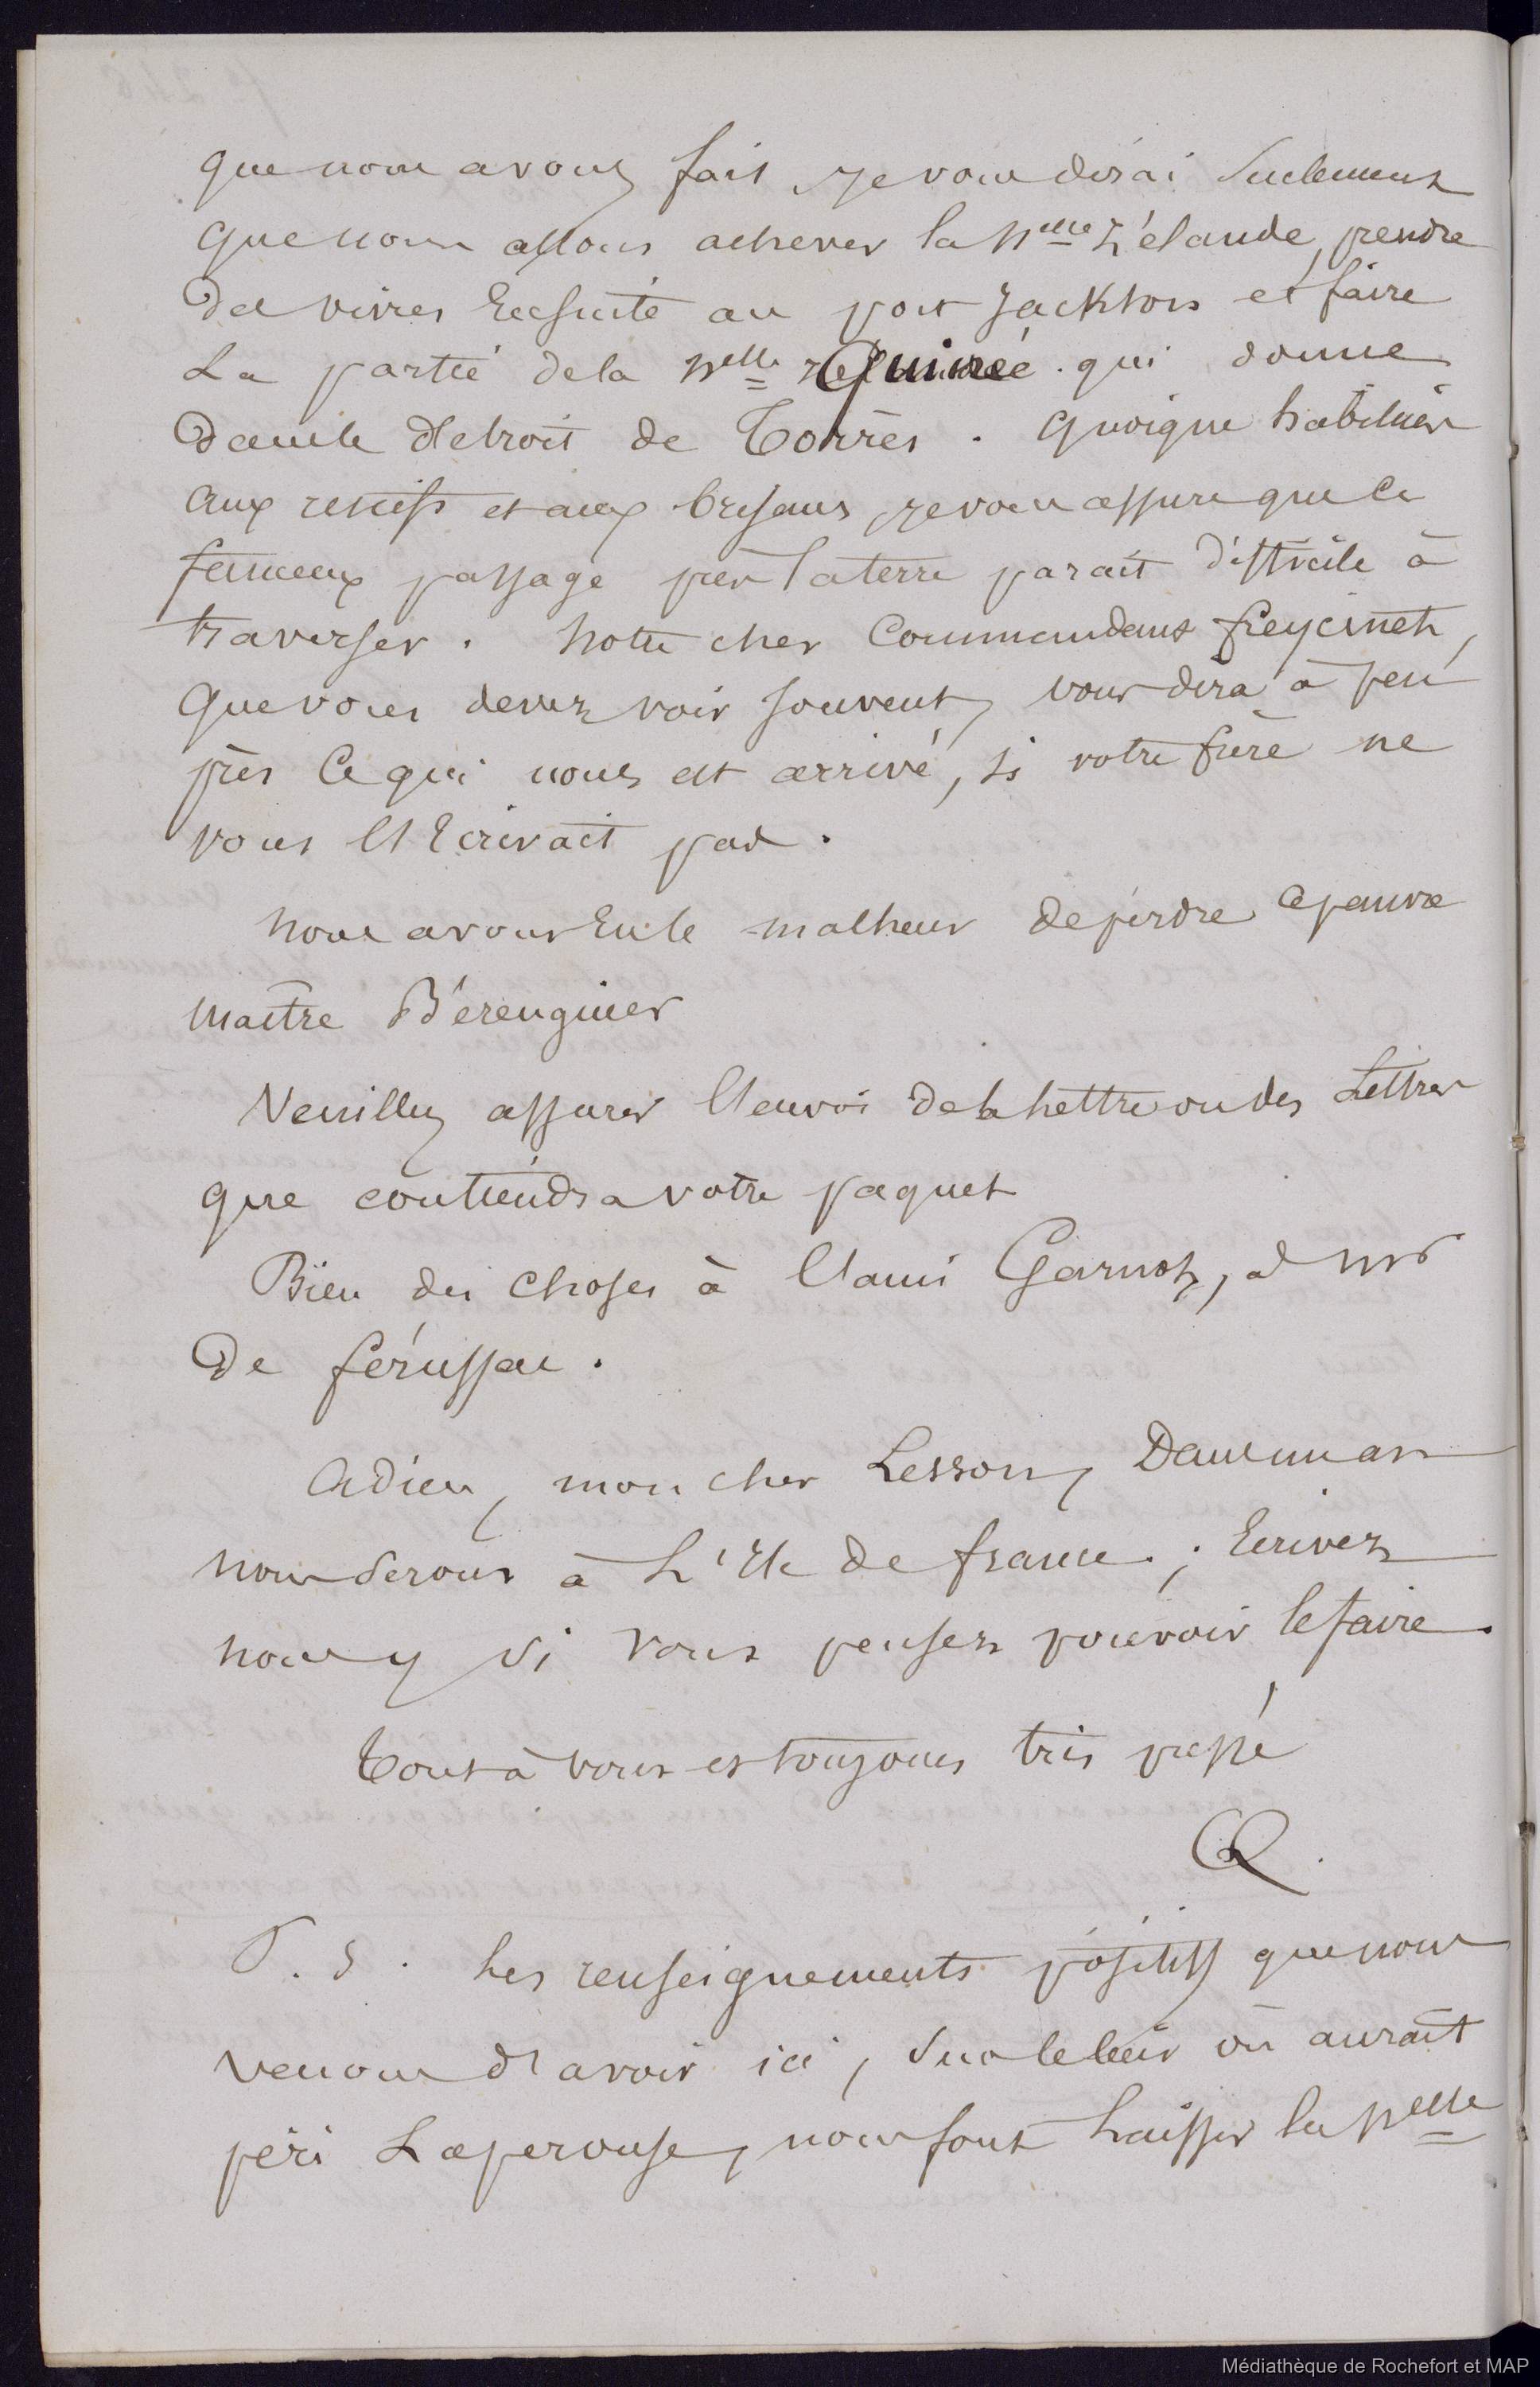 que nous avons fait, je vous dirai seulement
que nous allons achever la Nelle Zélande, prendre
des vivres Ensuite au port Jackson et faire
La partie de la Nelle Guinée qui donne
dans le détroit de Torrès. Quoique habitués
aux rescifs et aux brisans, je vous assure que ce
fameux passage près la terre parait difficile à
traverser. Notre cher Commandant freycinet,
que vous devez voir souvent, vous dira à peu
près ce qui nous est arrivé, si votre frère ne
vous l'Ecrivait pas.
Nous avons Eu le malheur de perdre ce pauvre
Maitre Bérenguier
Veuillez assurer l'envoi de la Lettre ou des Lettres
que contiendra votre paquet
Bien des choses à l'ami Garnot, à Mr
De férussac.
Adieu, mon cher Lesson, Dans un an
nous serons à L'Ile de france.; Ecrivez
nous y si vous pensez pouvoir le faire.
Tout à vous et toujours très pressé
Q.
P. S. Les renseignements positifs que nous
venons d'avoir ici, sur le lieu où aurait
péri Laperouse, nous font laisser la Nelle
Médiathèque de Rochefort et MAP